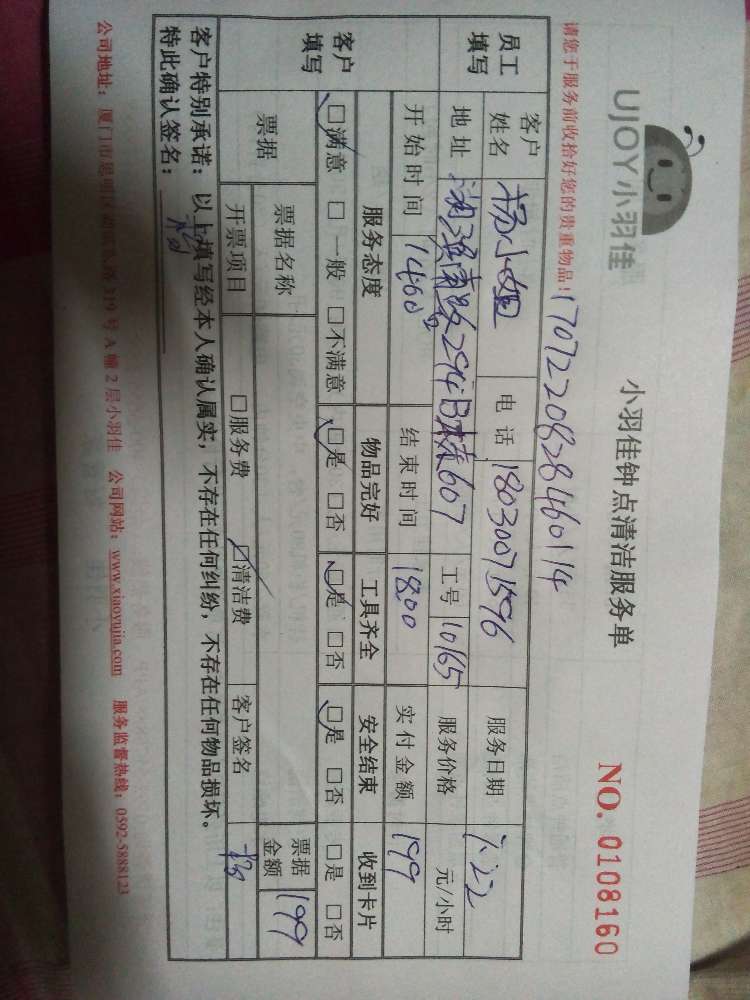 UJOY小羽佳
小羽佳钟点清洁服务单
NO. 0108160
请您于服务前收拾好您的贵重物品！
1707220828460114
员工填写
客户姓名 杨小姐 电话 18030071596 服务日期 7.22
地址 294 607 工号 10165 服务价格 元/小时
开始时间 1400 结束时间 1800 实付金额 199
客户填写
服务态度 物品完好 工具齐全 安全结束 收到卡片
☑满意 □一般 □不满意 ☑是 □否 ☑是 □否 ☑是 □否 □是 □否
票据 票据名称 票据金额 199
开票项目 □服务费 ☑清洁费 客户签名
客户特别承诺：以上填写经本人确认属实，不存在任何纠纷，不存在任何物品损坏。
特此确认签名：
公司地址：厦门市思明区 319号A幢2层小羽佳 公司网站：www.xiaoyujia.com 服务监督热线：0592-5888123